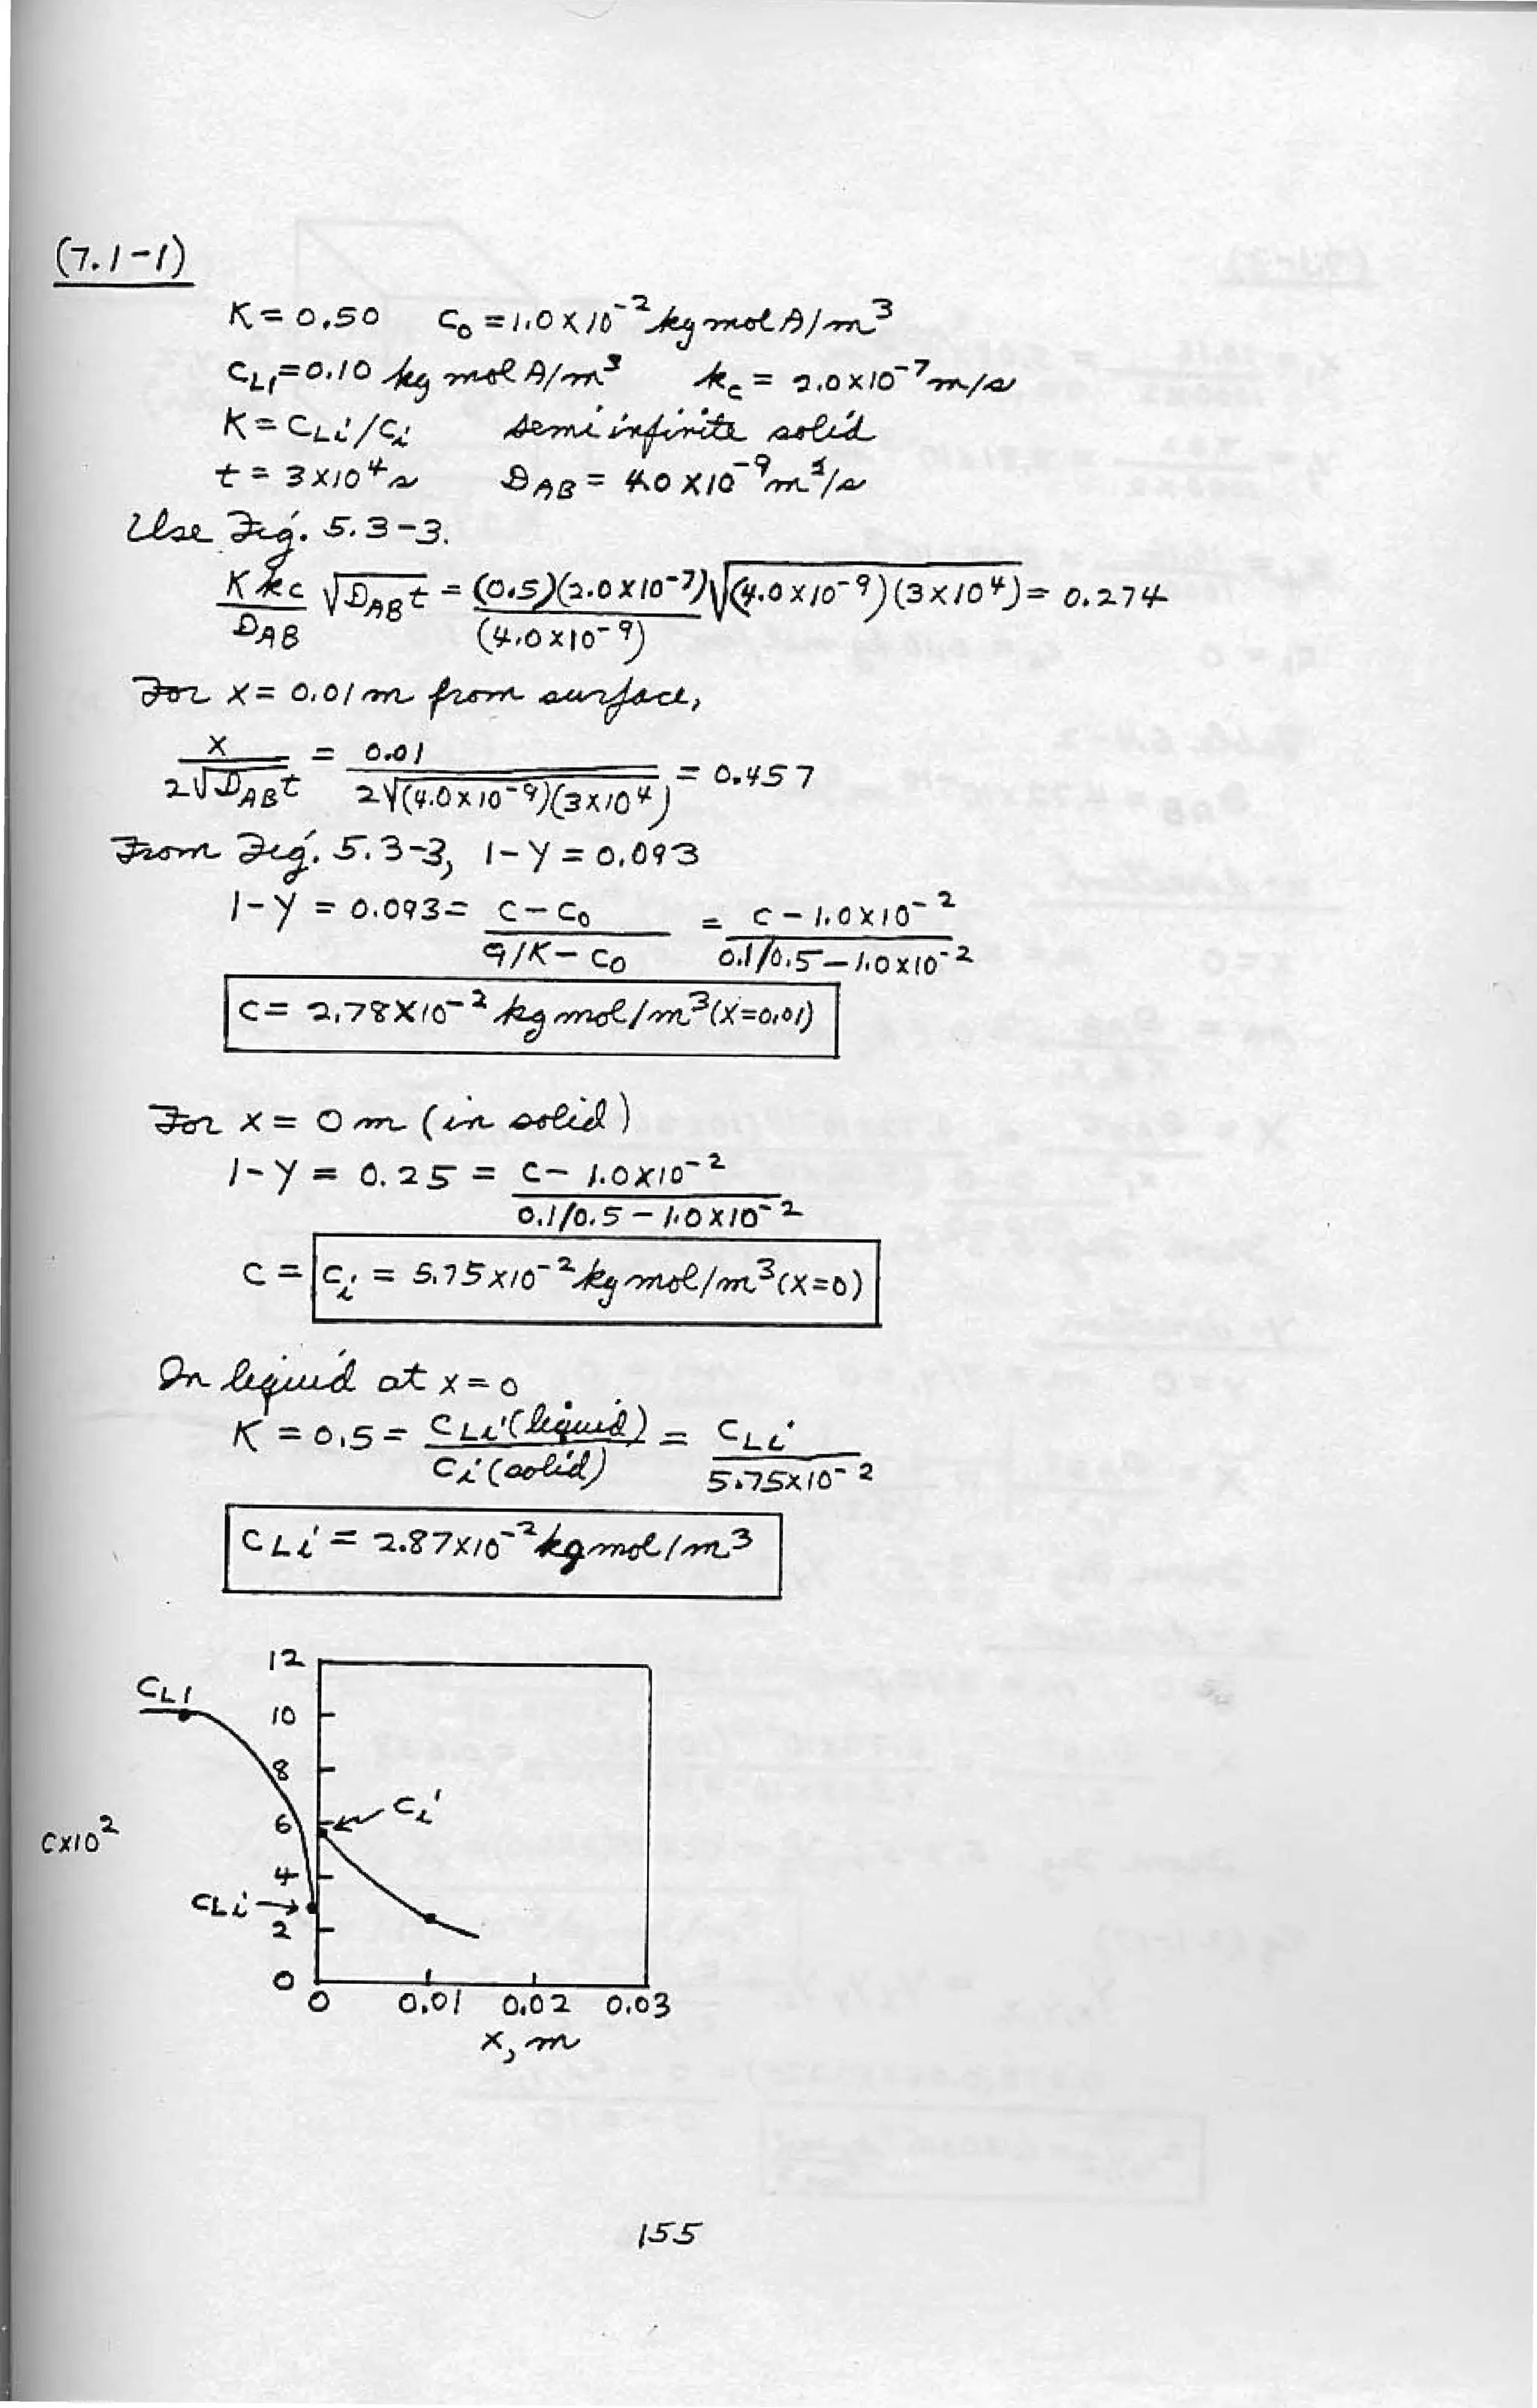 (7.1-1)
K = 0.50 c₀ = 1.0 x 10⁻² kg mol A/m³
c_L1 = 0.10 kg mol A/m³ k_c = 2.0x10⁻⁷ m/s
K = c_Li/c_i semi infinite solid
t = 3x10⁴ s D_AB = 4.0 x10⁻⁹ m²/s
Use Fig. 5.3-3.
K k_c/D_AB √(D_AB t) = (0.5)(2.0x10⁻⁷)/(4.0x10⁻⁹) √((4.0x10⁻⁹)(3x10⁴)) = 0.274
For x = 0.01 m from surface,
x/(2√(D_AB t)) = 0.01/(2√((4.0x10⁻⁹)(3x10⁴))) = 0.457
From Fig. 5.3-3, 1-Y = 0.093
1-Y = 0.093 = (c - c₀)/(c₁/K - c₀) = (c - 1.0x10⁻²)/(0.1/0.5 - 1.0x10⁻²)
c = 2.78x10⁻² kg mol/m³ (x=0.01)
For x = 0 m (in solid)
1-Y = 0.25 = (c - 1.0x10⁻²)/(0.1/0.5 - 1.0x10⁻²)
c = c_i = 5.75x10⁻² kg mol/m³ (x=0)
In liquid at x = 0
K = 0.5 = c_Li (liquid)/c_i (solid) = c_Li/5.75x10⁻²
c_Li = 2.87x10⁻² kg mol/m³
12
c_L1
10
8
c_i
6
cx10²
4
c_Li
2
0
0 0.01 0.02 0.03
x, m
155